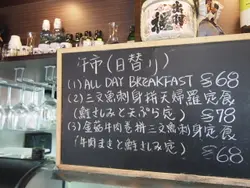 午市(日替り)
(1) ALL DAY BREAKFAST $68
(2) 三文魚刺身拼天婦羅定食
(鮭さしみと天ぷら定) $78
(3) 金菇牛肉卷拼三文魚刺身定食
(牛肉まきと鮭さしみ定)
$68